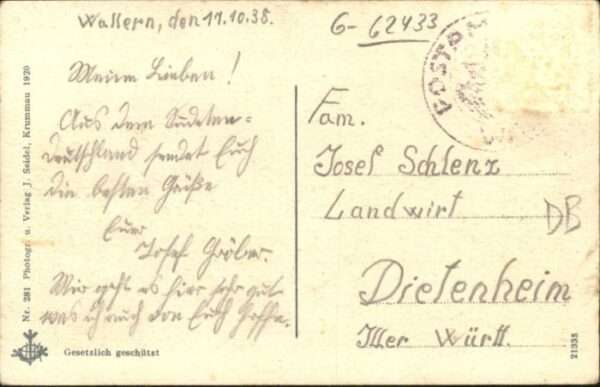 Wallern, den 11.10.38.
G- 62433
POSTA
Meine Lieben!
Aus dem Sudeten=
deutschland sendet Euch
die besten Grüße
Euer
Josef Gröber.
Mir geht es hier sehr gut
was ich auch von Euch hoffe.
Fam.
Josef Schlenz
Landwirt
DB
Dietenheim
Iller Württ.
Nr. 281 Photogr. u. Verlag J. Seidel, Krummau 1920
Gesetzlich geschützt
21335